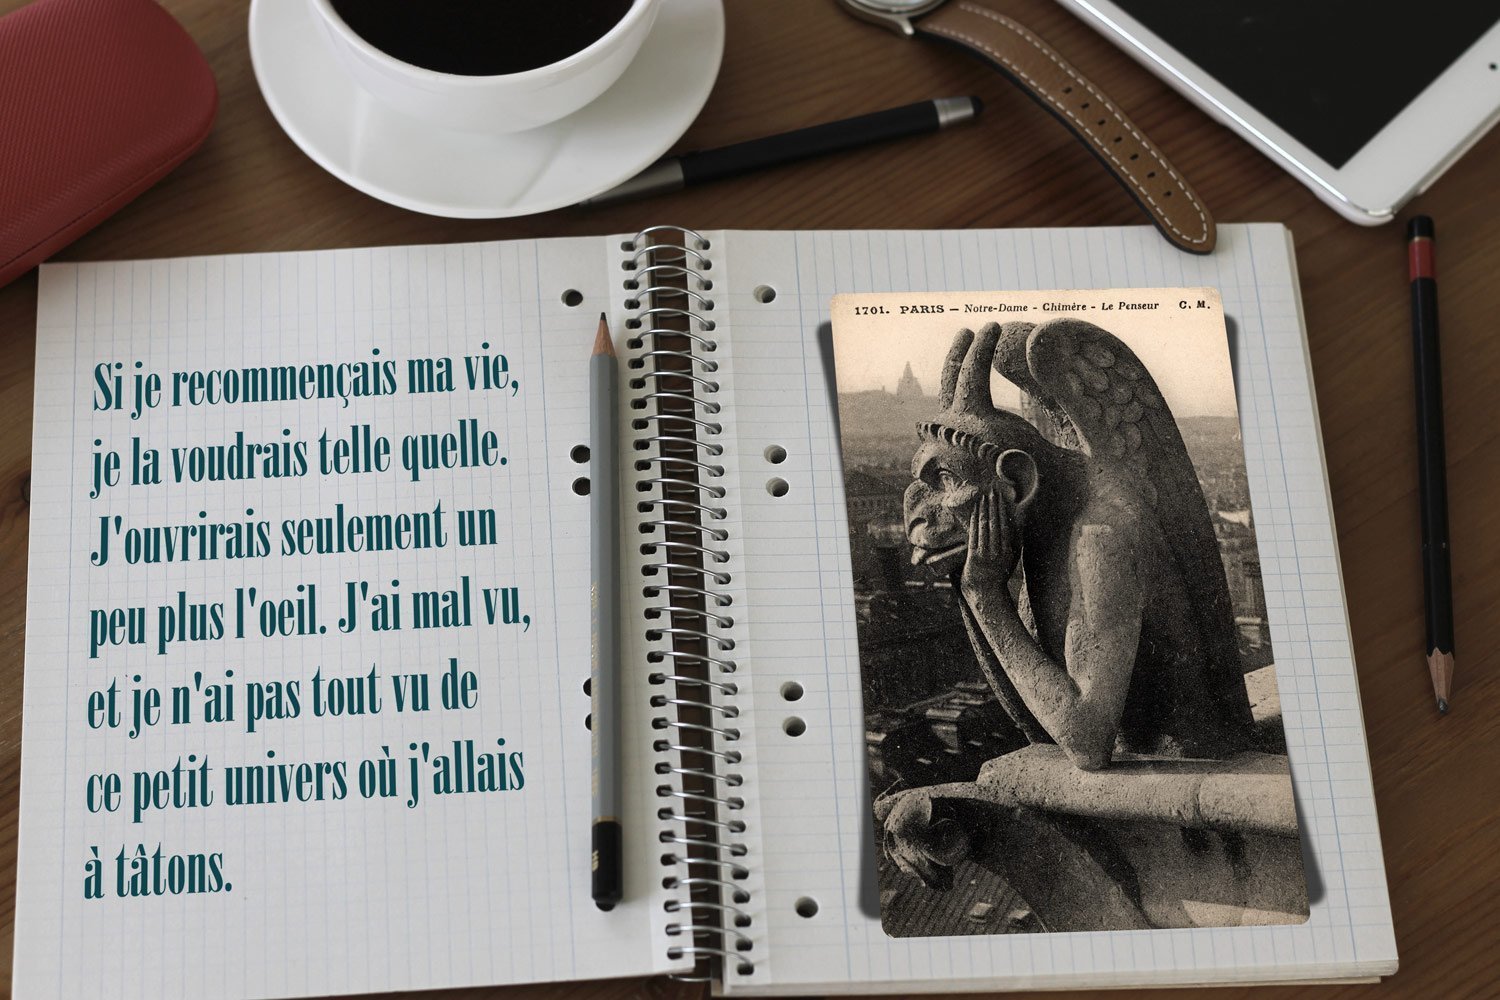 Si je recommençais ma vie,
je la voudrais telle quelle.
J'ouvrirais seulement un
peu plus l'oeil. J'ai mal vu,
et je n'ai pas tout vu de
ce petit univers où j'allais
à tâtons.
1701. PARIS — Notre-Dame - Chimère - Le Penseur C. M.